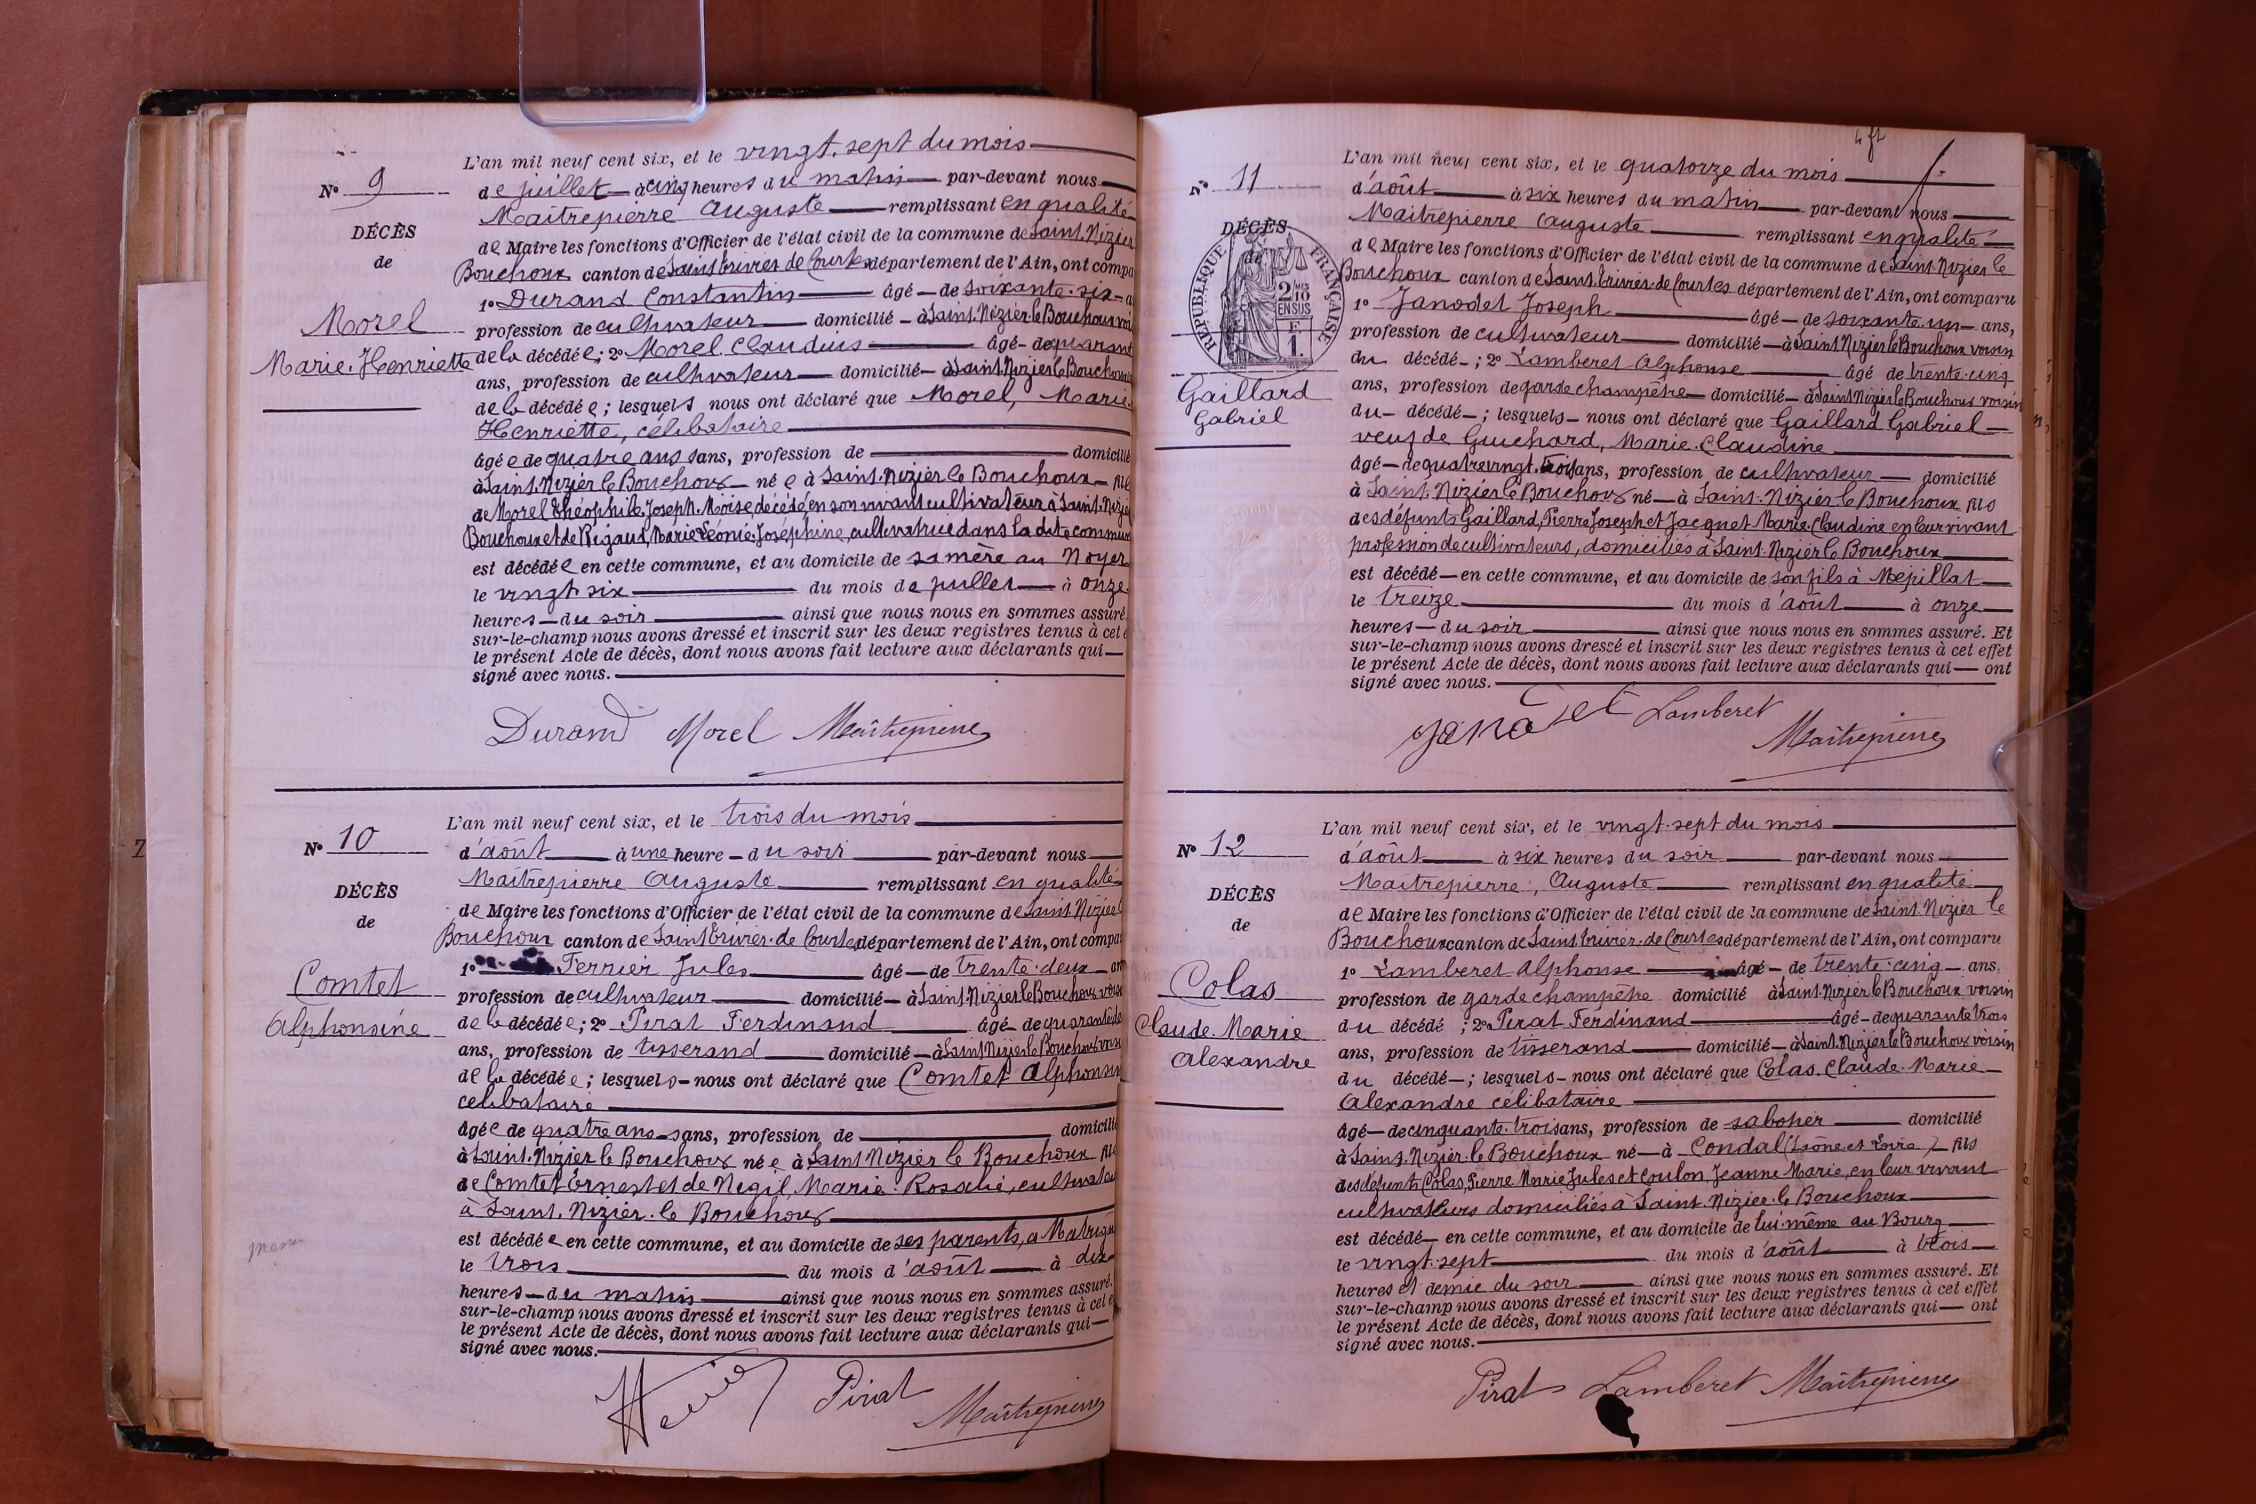 N° 9
DÉCÈS
de
Morel
Marie-Henriette
L'an mil neuf cent six, et le vingt-sept du mois
de juillet à cinq heures du matin par-devant nous
Maitrepierre Auguste remplissant en qualité
de Maire les fonctions d'Officier de l'état civil de la commune de Saint-Nizier
Bouchoux canton de Saint-Trivier-de-Courtes département de l'Ain, ont compa
1° Durand Constantin âgé de soixante-six a
profession de cultivateur domicilié à Saint-Nizier le Bouchoux
de la décédée; 2° Morel Claudius âgé de
ans, profession de cultivateur domicilié à Saint-Nizier le Bouchoux
de la décédée; lesquels nous ont déclaré que Morel, Marie
Henriette, célibataire
âgée de quatre ans ans, profession de domicilié
à Saint-Nizier le Bouchoux née à Saint-Nizier le Bouchoux
de Morel Théophile Joseph Moïse, décédé en son vivant cultivateur à Saint-Nizier
Bouchoux et de Rigaud, Marie Léonie Joséphine, cultivatrice dans la dite commune
est décédée en cette commune, et au domicile de sa mère au Noyer
le vingt-six du mois de juillet à onze
heures du soir ainsi que nous nous en sommes assuré
sur-le-champ nous avons dressé et inscrit sur les deux registres tenus à cet e
le présent Acte de décès, dont nous avons fait lecture aux déclarants qui
signé avec nous.
Durand Morel Maitrepierre
N° 10
DÉCÈS
de
Comtet
Alphonsine
L'an mil neuf cent six, et le trois du mois
d'août à une heure du soir par-devant nous
Maitrepierre Auguste remplissant en qualité
de Maire les fonctions d'Officier de l'état civil de la commune de Saint Nizier
Bouchoux canton de Saint Trivier-de-Courtes département de l'Ain, ont compa
1° Ferrier Jules âgé de trente-deux an
profession de cultivateur domicilié à Saint-Nizier le Bouchoux
de la décédée; 2° Pirat Ferdinand âgé de quarante
ans, profession de tisserand domicilié à Saint Nizier le Bouchoux
de la décédée; lesquels nous ont déclaré que Comtet Alphonsine
célibataire
âgée de quatre ans ans, profession de domicilié
à Saint-Nizier le Bouchoux née à Saint Nizier le Bouchoux
de Comtet Ernest et de Negil, Marie-Rosalie, cultivateu
à Saint-Nizier-le Bouchoux
est décédée en cette commune, et au domicile de ses parents, à
le trois du mois d'août à dix
heures du matin ainsi que nous nous en sommes assuré.
sur-le-champ nous avons dressé et inscrit sur les deux registres tenus à cet e
le présent Acte de décès, dont nous avons fait lecture aux déclarants qui
signé avec nous.
Pirat Maitrepierre
4 ft
N° 11
DÉCÈS
de
RÉPUBLIQUE FRANÇAISE
2 10
EN SUS
F
1
Gaillard
Gabriel
L'an mil neuf cent six, et le quatorze du mois
d'août à six heures du matin par-devant nous
Maitrepierre Auguste remplissant en qualité
de Maire les fonctions d'Officier de l'état civil de la commune de Saint-Nizier le
Bouchoux canton de Saint Trivier-de-Courtes département de l'Ain, ont comparu
1° Janodet Joseph âgé de soixante-un ans,
profession de cultivateur domicilié à Saint Nizier le Bouchoux voisin
du décédé; 2° Lamberet Alphonse âgé de trente-cinq
ans, profession de garde champêtre domicilié à Saint Nizier le Bouchoux voisin
du décédé; lesquels nous ont déclaré que Gaillard Gabriel
veuf de Guichard, Marie-Claudine
âgé de quatre vingt-trois ans, profession de cultivateur domicilié
à Saint-Nizier le Bouchoux né à Saint-Nizier le Bouchoux fils
des défunts Gaillard, Pierre Joseph et Jacquet Marie-Claudine en leur vivant
profession de cultivateurs, domiciliés à Saint-Nizier le Bouchoux
est décédé en cette commune, et au domicile de son fils à Mépillat
le treize du mois d'août à onze
heures du soir ainsi que nous nous en sommes assuré. Et
sur-le-champ nous avons dressé et inscrit sur les deux registres tenus à cet effet
le présent Acte de décès, dont nous avons fait lecture aux déclarants qui ont
signé avec nous.
Janodet Lamberet Maitrepierre
N° 12
DÉCÈS
de
Colas
Claude-Marie
Alexandre
L'an mil neuf cent six, et le vingt-sept du mois
d'août à six heures du soir par-devant nous
Maitrepierre, Auguste remplissant en qualité
de Maire les fonctions d'Officier de l'état civil de la commune de Saint Nizier le
Bouchoux canton de Saint Trivier-de-Courtes département de l'Ain, ont comparu
1° Lamberet Alphonse âgé de trente-cinq ans,
profession de garde champêtre domicilié à Saint-Nizier le Bouchoux voisin
du décédé; 2° Pirat Ferdinand âgé de quarante trois
ans, profession de tisserand domicilié à Saint-Nizier le Bouchoux voisin
du décédé; lesquels nous ont déclaré que Colas Claude-Marie
Alexandre célibataire
âgé de cinquante-trois ans, profession de sabotier domicilié
à Saint-Nizier-le Bouchoux né à Condal (Saône et Loire) fils
des défunts Colas, Pierre Marie Jules et Coulon Jeanne Marie, en leur vivant
cultivateurs domiciliés à Saint-Nizier-le Bouchoux
est décédé en cette commune, et au domicile de lui-même au Bourg
le vingt-sept du mois d'août à trois
heures et demie du soir ainsi que nous nous en sommes assuré. Et
sur-le-champ nous avons dressé et inscrit sur les deux registres tenus à cet effet
le présent Acte de décès, dont nous avons fait lecture aux déclarants qui ont
signé avec nous.
Pirat Lamberet Maitrepierre